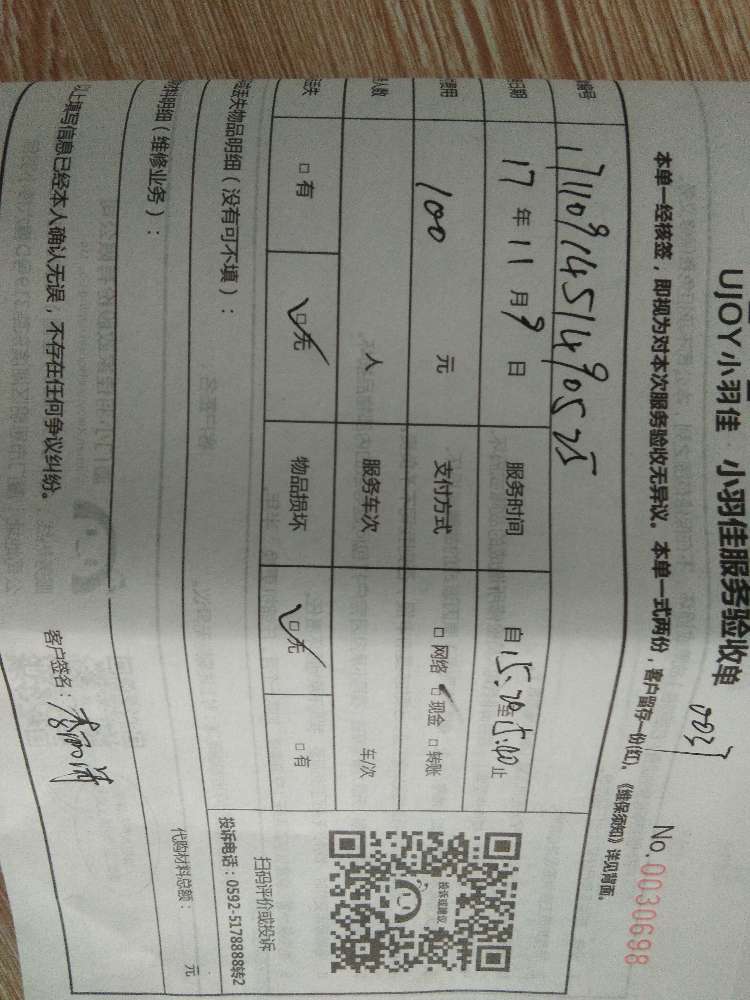 UJOY小羽佳 小羽佳服务验收单
No.0030698
本单一经核签，即视为对本次服务验收无异议。本单一式两份，客户留存一份(红)。《维保须知》详见背面。
编号 1711091451490525
日期 17 年 11 月 9 日 服务时间 自 15:20 至 15:00 止
费用 100 元 支付方式 □ 网络 □ 现金 □ 转账
人数 人 服务车次 车/次
丢失 □ 有 □ 无 物品损坏 □ 无 □ 有
丢失物品明细（没有可不填）：
扫码评价或投诉
投诉电话：0592-5178888转2
投诉或建议
材料明细（维修业务）：
代购材料总额： 元
以上填写信息已经本人确认无误，不存在任何争议纠纷。
客户签名：